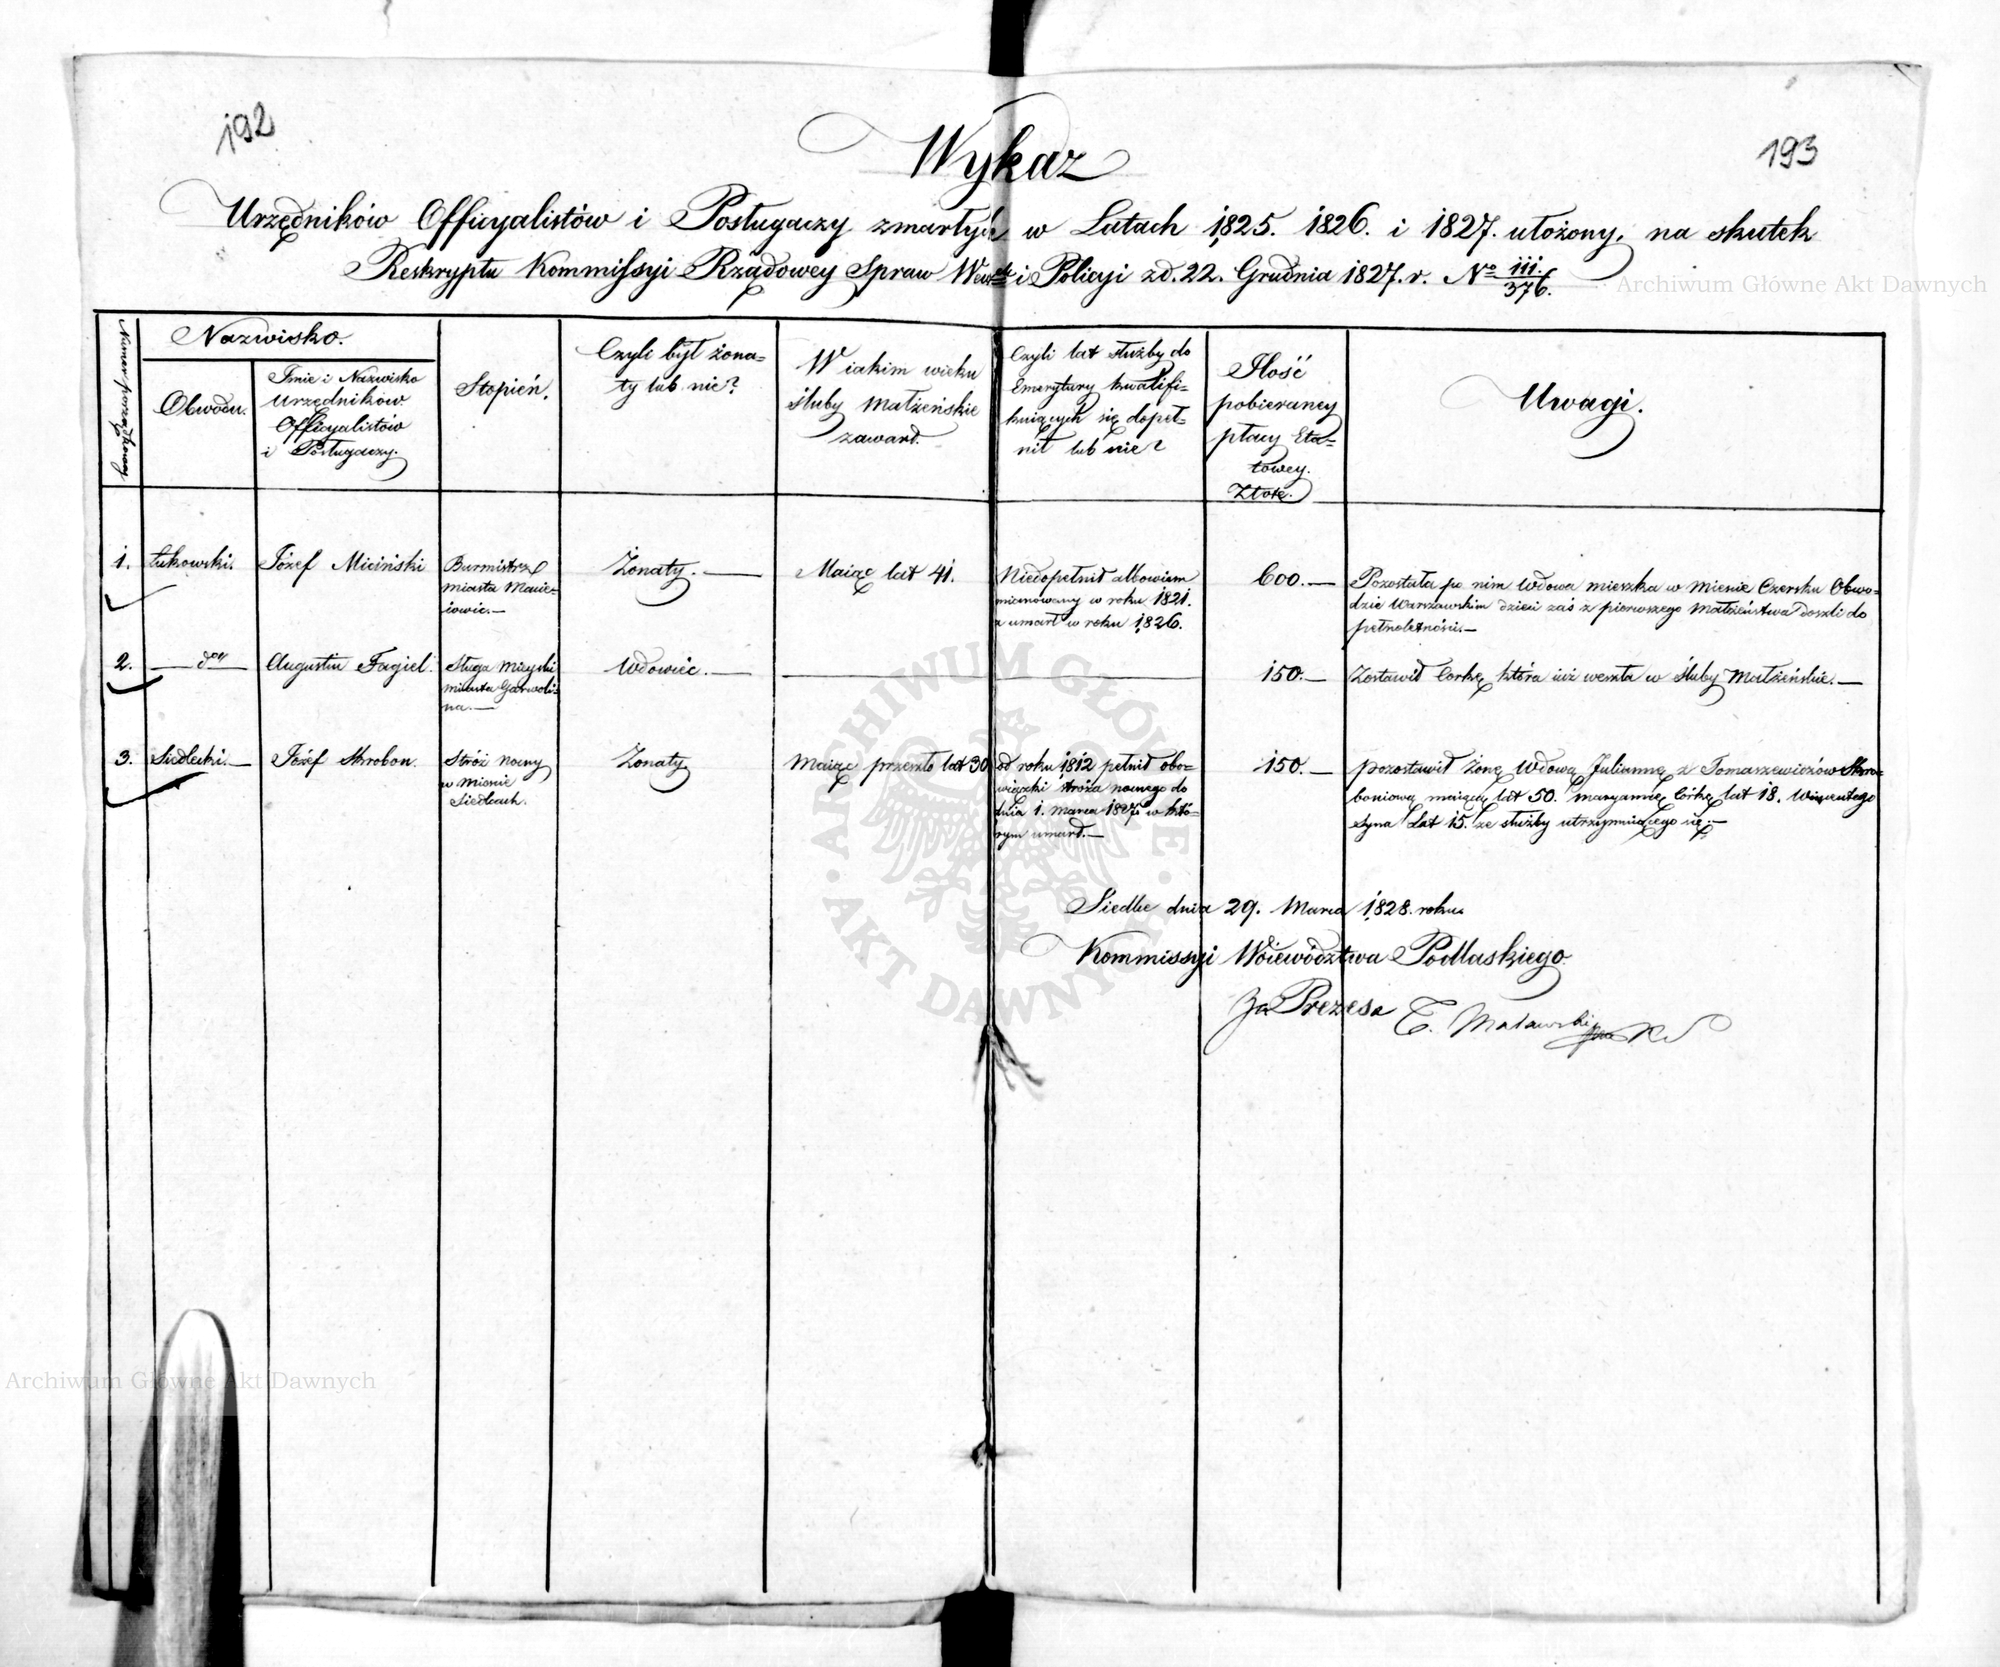 192
193
Wykaz
Urzędników Officyalistów i Posługaczy zmarłych w Latach 1825. 1826. i 1827. ułożony, na skutek
Reskryptu Kommissyi Rządowey Spraw Wewch i Policyi zd. 22. Grudnia 1827. r. No 111./376.
Archiwum Główne Akt Dawnych
Numer porządkowy
Nazwisko.
Obwodu.
Jmie i Nazwisko
Urzędników
Officyalistów
i Posługaczy.
Stopień.
Czyli był żona-
ty lub nie?
W iakim wieku
śluby Małżeńskie
zawarł.
Czyli lat służby do
Emerytury kwalifi-
kuiących się dopeł-
nił lub nie?
Jlość
pobieraney
płacy Eta-
towey.
Złote.
Uwagi.
1.
Łukowski.
Józef Miciński
Burmistrz
miasta Macie-
iowic.—
Żonaty.—
Maiąc lat 41.
Niedopełnił albowiem
mianowany w roku 1821.
a umarł w roku 1826.
600.—
Pozostała po nim Wdowa mieszka w Mieście Czersku Obwo-
dzie Warszawskim dzieci zaś z pierwszego Małżeństwa doszli do
pełnoletności.—
2.
— dto —
Augustin Fagiel.
Sługa Mieyski
miasta Garwoli-
na.—
Wdowiec.—
150.—
Zostawił Corkę która iuż weszła w Śluby Małżeńskie.—
3.
Siedlecki.—
Józef Skrobon.
Stróż nocny
w Mieście
Siedlcach.
Żonaty
Maiąc przeszło lat 30
od roku 1812 pełnił obo-
wiązki stróża nocnego do
dnia 1. Marca 1827 w któ-
rym umarł.—
150.—
pozostawił Żonę Wdową Juliannę z Tomaszewiczów Skro-
boniową maiącą lat 50. Maryannę Córkę lat 18. Wincentego
Syna Lat 15. ze służby utrzymuiącego się.—
ARCHIWUM GŁÓWNE · AKT DAWNYCH ·
Siedlce dnia 29. Marca 1828. roku
Kommissyi Woiewództwa Podlaskiego.
Za Prezesa
Archiwum Główne Akt Dawnych